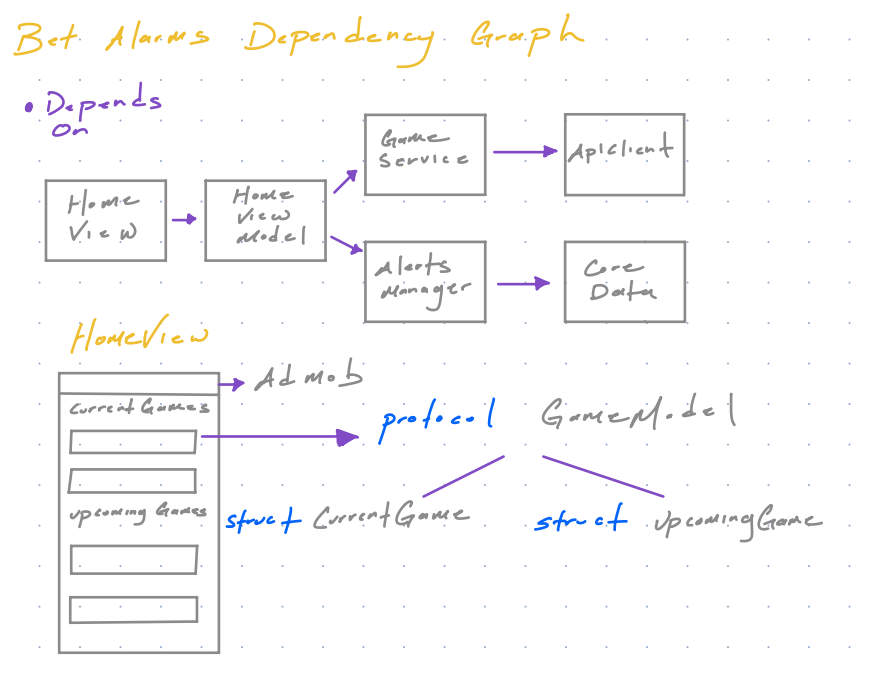 Bet Alarms Dependency Graph
• Depends
On
Home
View
Home
View
Model
Game
Service
ApiClient
Alerts
Manager
Core
Data
HomeView
Admob
Current Games
Upcoming Games
protocol GameModel
struct CurrentGame
struct UpcomingGame